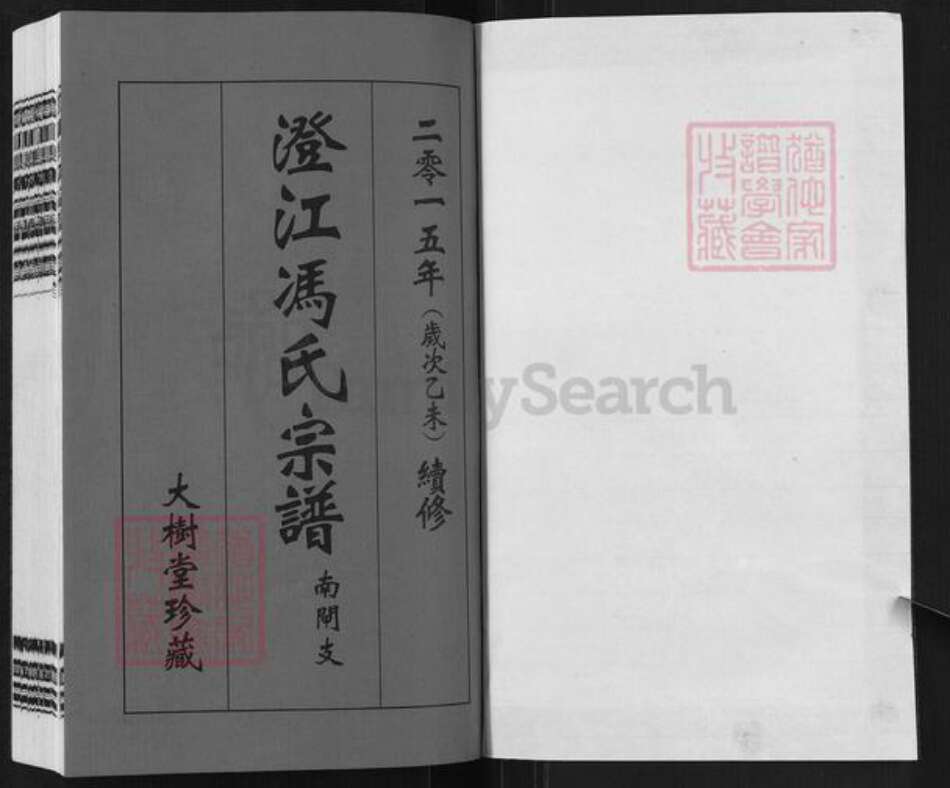 二零一五年（歲次乙未）續修
澄江馮氏宗譜
南閘支
大樹堂珍藏
猶他家
譜學會
收藏
FamilySearch